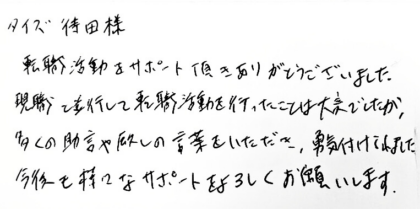 タイズ 待田様
転職活動をサポート頂きありがとうございました。
現職と並行して転職活動を行ったことは大変でしたが、
多くの助言や励しの言葉をいただき、勇気付けられました
今後も様々なサポートをよろしくお願いします。